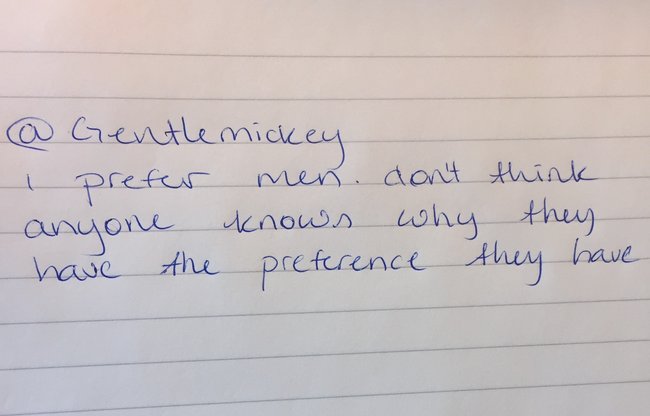 @ Gentlemickey
i prefer men. don't think
anyone knows why they
have the preference they have